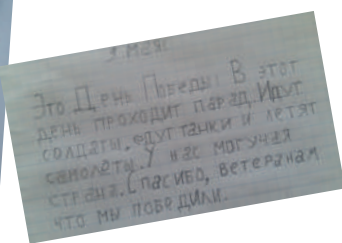 9 мая
Это День Победы. В этот
день проходит парад. Идут
солдаты, едут танки и летят
самолеты. У нас могучая
страна. Спасибо, ветеранам
что мы победили.